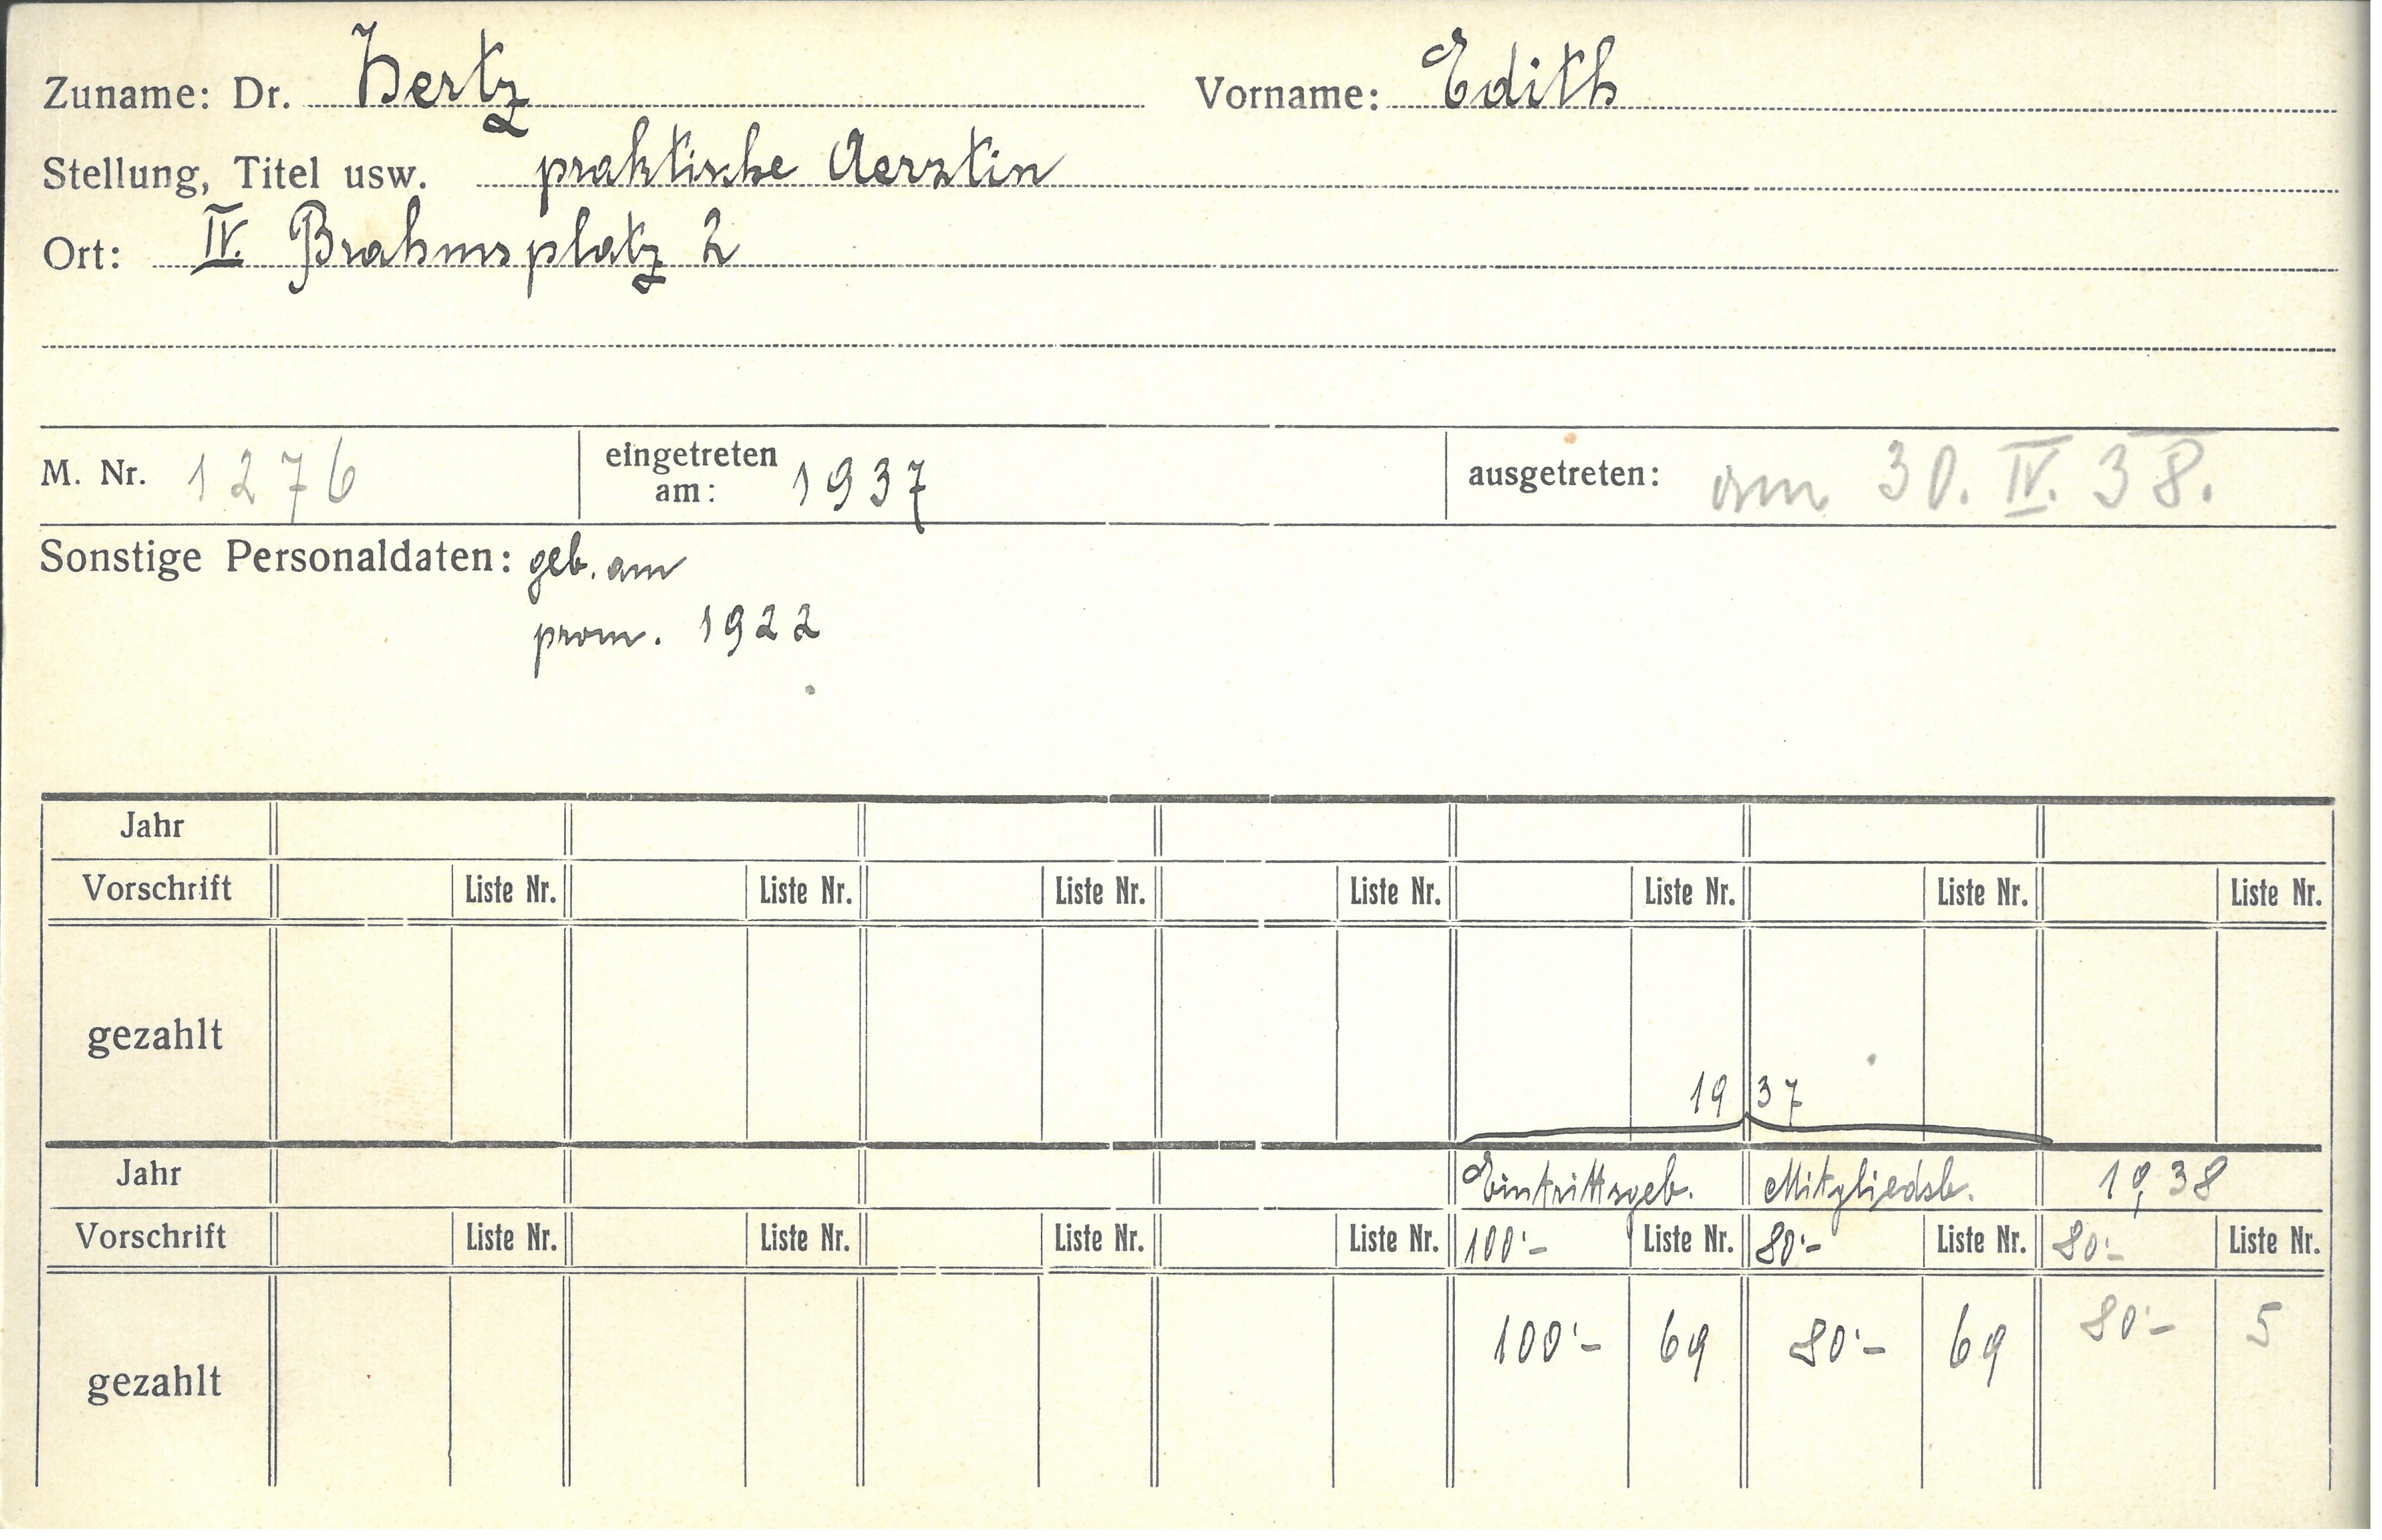 Zuname: Dr. Hertz Vorname: Edith
Stellung, Titel usw. praktische Aerztin
Ort: IV. Brahmsplatz 2
M. Nr. 1276 eingetreten am: 1937 ausgetreten: am 30. IV. 38.
Sonstige Personaldaten: geb. am
prom. 1922
Jahr
Vorschrift Liste Nr. Liste Nr. Liste Nr. Liste Nr. Liste Nr. Liste Nr. Liste Nr.
gezahlt
1937
Jahr Eintrittsgeb. Mitgliedsb. 1938
Vorschrift Liste Nr. Liste Nr. Liste Nr. Liste Nr. 100'- Liste Nr. 80'- Liste Nr. 80'- Liste Nr.
gezahlt 100'- 69 80'- 69 80'- 5